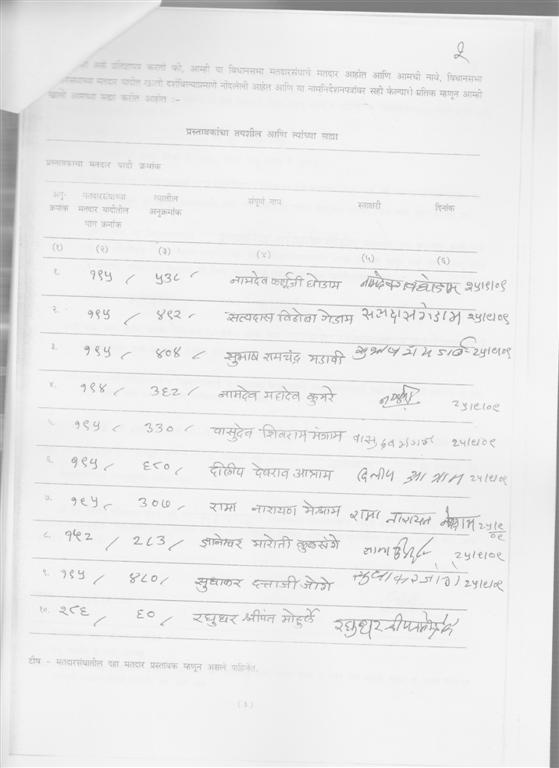 २
आम्ही असे प्रतिज्ञापन करतो की, आम्ही या विधानसभा मतदारसंघाचे मतदार आहोत आणि आमची नावे, विधानसभा
मतदारसंघाच्या मतदार यादीत खाली दर्शविल्याप्रमाणे नोंदलेली आहेत आणि या नामनिर्देशनपत्रावर सही केल्याचे प्रतिक म्हणून आम्ही
खाली आमच्या सह्या करीत आहोत :-
प्रस्तावकांचा तपशील आणि त्यांच्या सह्या
प्रस्तावकाचा मतदार यादी क्रमांक
अनु- मतदारसंघाच्या त्यातील संपूर्ण नाव स्वाक्षरी दिनांक
क्रमांक मतदार यादीतील अनुक्रमांक
भाग क्रमांक
(१) (२) (३) (४) (५) (६)
१. १९५ / ५३८ / नामदेव घोडाम २५/९/०९
२. १९५ / ४९२ / सत्यदास विठोबा गेडाम सत्यदास गेडाम २५/९/०९
३. १९५ / ४०४ / सुभाष रामचंद्र मडावी २५/९/०९
४. १९४ / ३६२ / नामदेव महादेव कुमरे २५/९/०९
५. १९५ / ३३० / वासुदेव शिवराम मेश्राम २५/९/०९
६. १९५ / ६८० / दीलीप देवराव आत्राम दिलीप आत्राम २५/९/०९
७. १९५ / ३०७ / रामा नारायण मेश्राम रामा नारायण मेश्राम २५/९/०९
८. १५२ / २८३ / ज्ञानेश्वर मारोती कुळसंगे २५/९/०९
९. १९५ / ४८० / सुधाकर दत्ताजी २५/९/०९
१०. २८६ / ६० / रघुधर श्रीपत मोहुर्ले
टीप - मतदारसंघातील दहा मतदार प्रस्तावक म्हणून असले पाहिजेत.
(३)